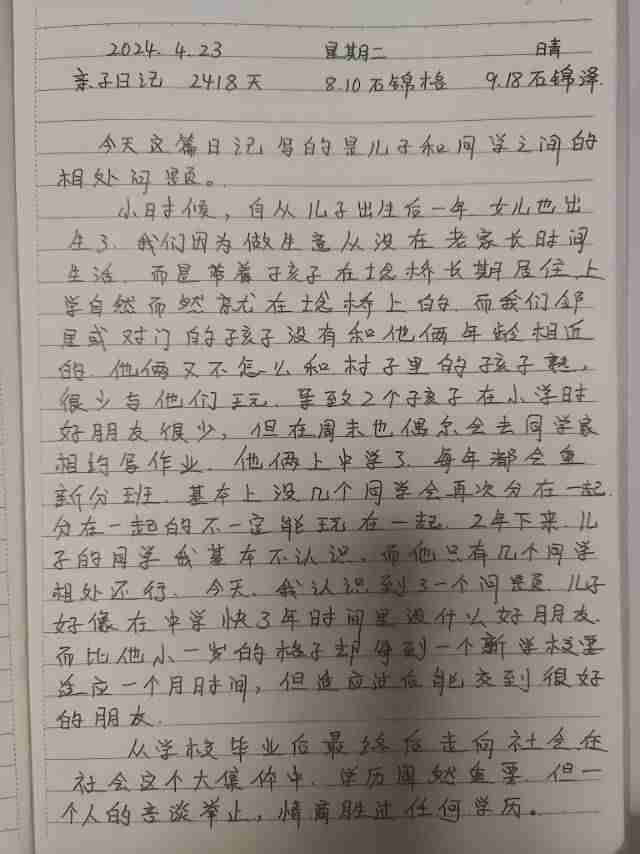 2024.4.23 星期二 晴
亲子日记 2418天 8.10石锦格 9.18石锦泽.
今天这篇日记写的是儿子和同学之间的
相处问题。
小时候，自从儿子出生后一年 女儿也出
生了.我们因为做生意从没在老家长时间
生活.而是带着孩子在埝桥长期居住.上
学自然而然就在埝桥上的.而我们邻
居或对门的孩子没有和他俩年龄相近
的.他俩又不怎么和村子里的孩子熟，
很少与他们玩.导致2个孩子在小学时
好朋友很少，但在周末也偶尔会去同学家
相约写作业.他俩上中学了.每年都会重
新分班.基本上没几个同学会再次分在一起.
分在一起的不一定能玩在一起.2年下来.儿
子的同学我基本不认识.而他只有几个同学
相处还行.今天.我认识到了一个问题.儿子
好像在中学快3年时间里没什么好朋友.
而比他小一岁的格子却每到一个新学校要
适应一个月时间，但适应过后能交到很好
的朋友.
从学校毕业后最终后走向社会.在
社会这个大集体中.学历固然重要.但一
个人的言谈举止，情商胜过任何学历。